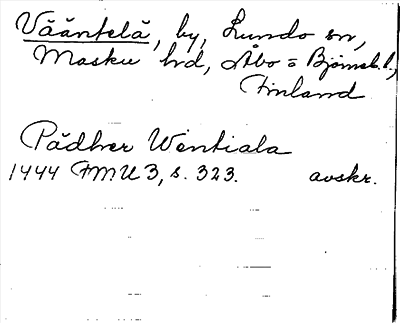 Vääntelä, by, Lundo sn,
Masku hd, Åbo = Björneb. l.,
Finland
Pädher Wentiala
1444 FMU 3, s. 323. avskr.